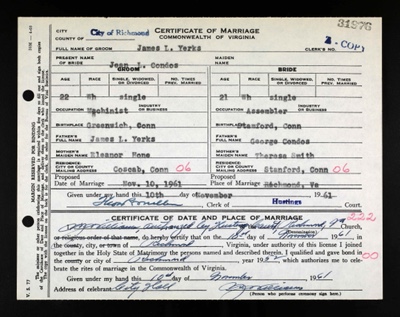 31976
CITY
COUNTY OF
City of Richmond
CERTIFICATE OF MARRIAGE
COMMONWEALTH OF VIRGINIA
COPY
FULL NAME OF GROOM James L. Yerks CLERK'S NO.
PRESENT NAME OF BRIDE Jean L. Condos MAIDEN NAME
GROOM BRIDE
AGE RACE SINGLE, WIDOWED, OR DIVORCED NO. TIMES PREV. MARRIED AGE RACE SINGLE, WIDOWED, OR DIVORCED NO. TIMES PREV. MARRIED
22 Wh single 21 Wh single
OCCUPATION Machinist INDUSTRY OR BUSINESS OCCUPATION Assembler INDUSTRY OR BUSINESS
BIRTHPLACE Greenwich, Conn BIRTHPLACE Stamford, Conn
FATHER'S FULL NAME James L. Yerks FATHER'S FULL NAME George Condos
MOTHER'S MAIDEN NAME Eleanor Hone MOTHER'S MAIDEN NAME Theresa Smith
RESIDENCE: CITY OR COUNTY MAILING ADDRESS Coscob, Conn 06 RESIDENCE: CITY OR COUNTY MAILING ADDRESS Stamford, Conn 06
Date of Proposed Marriage Nov. 10, 1961 Place of Proposed Marriage Richmond, Va
Given under my hand this 10th day of November 1961
Clerk of Hustings Court.
CERTIFICATE OF DATE AND PLACE OF MARRIAGE
222
I, Church,
or religious order of that name, do hereby certify that on the day of November, 1961
in the county, city, or town of Richmond, Virginia, under authority of this license I joined
together in the Holy State of Matrimony the persons named and described therein. I qualified and gave bond in
the county or city of Richmond, year 19, which authorizes me to celebrate
the rites of marriage in the Commonwealth of Virginia.
00
Given under my hand this 10 day of November 1961
Address of celebrant City Hall
(Person who performs ceremony sign here)
MARGIN RESERVED FOR BINDING